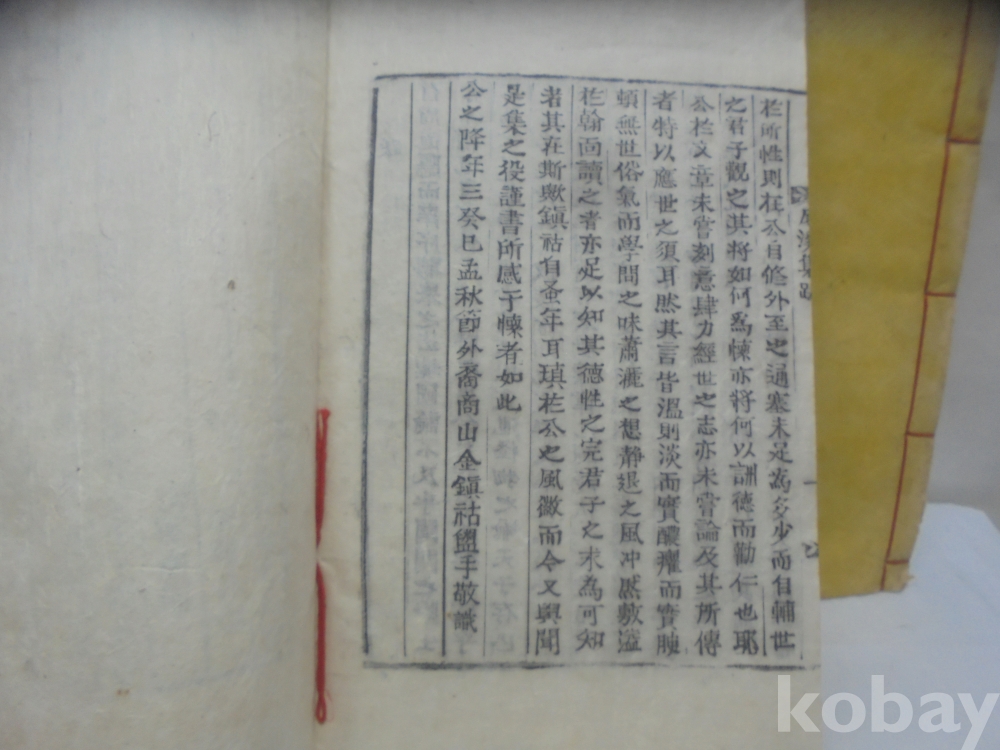 於所性則在公自修外至之通塞未足爲多少而自輔世
之君子觀之其將如何爲悚亦將何以詶德而勸仁也耶
公於文章未嘗刻意肆力經世之志亦未嘗論及其所傳
者特以應世之須耳然其言皆溫則淡而實醲癯而實腴
頓無世俗氣而學問之味蕭灑之想靜退之風冲然敷溢
於翰面讀之者亦足以知其德性之完君子之末為可知
者其在斯歟鎭祜自蚤年耳瑱於公之風徽而今又與聞
是集之役謹書所感于悚者如此
公之降年三癸巳孟秋節外裔商山金鎭祜盥手敬識
集跋
一
kobay